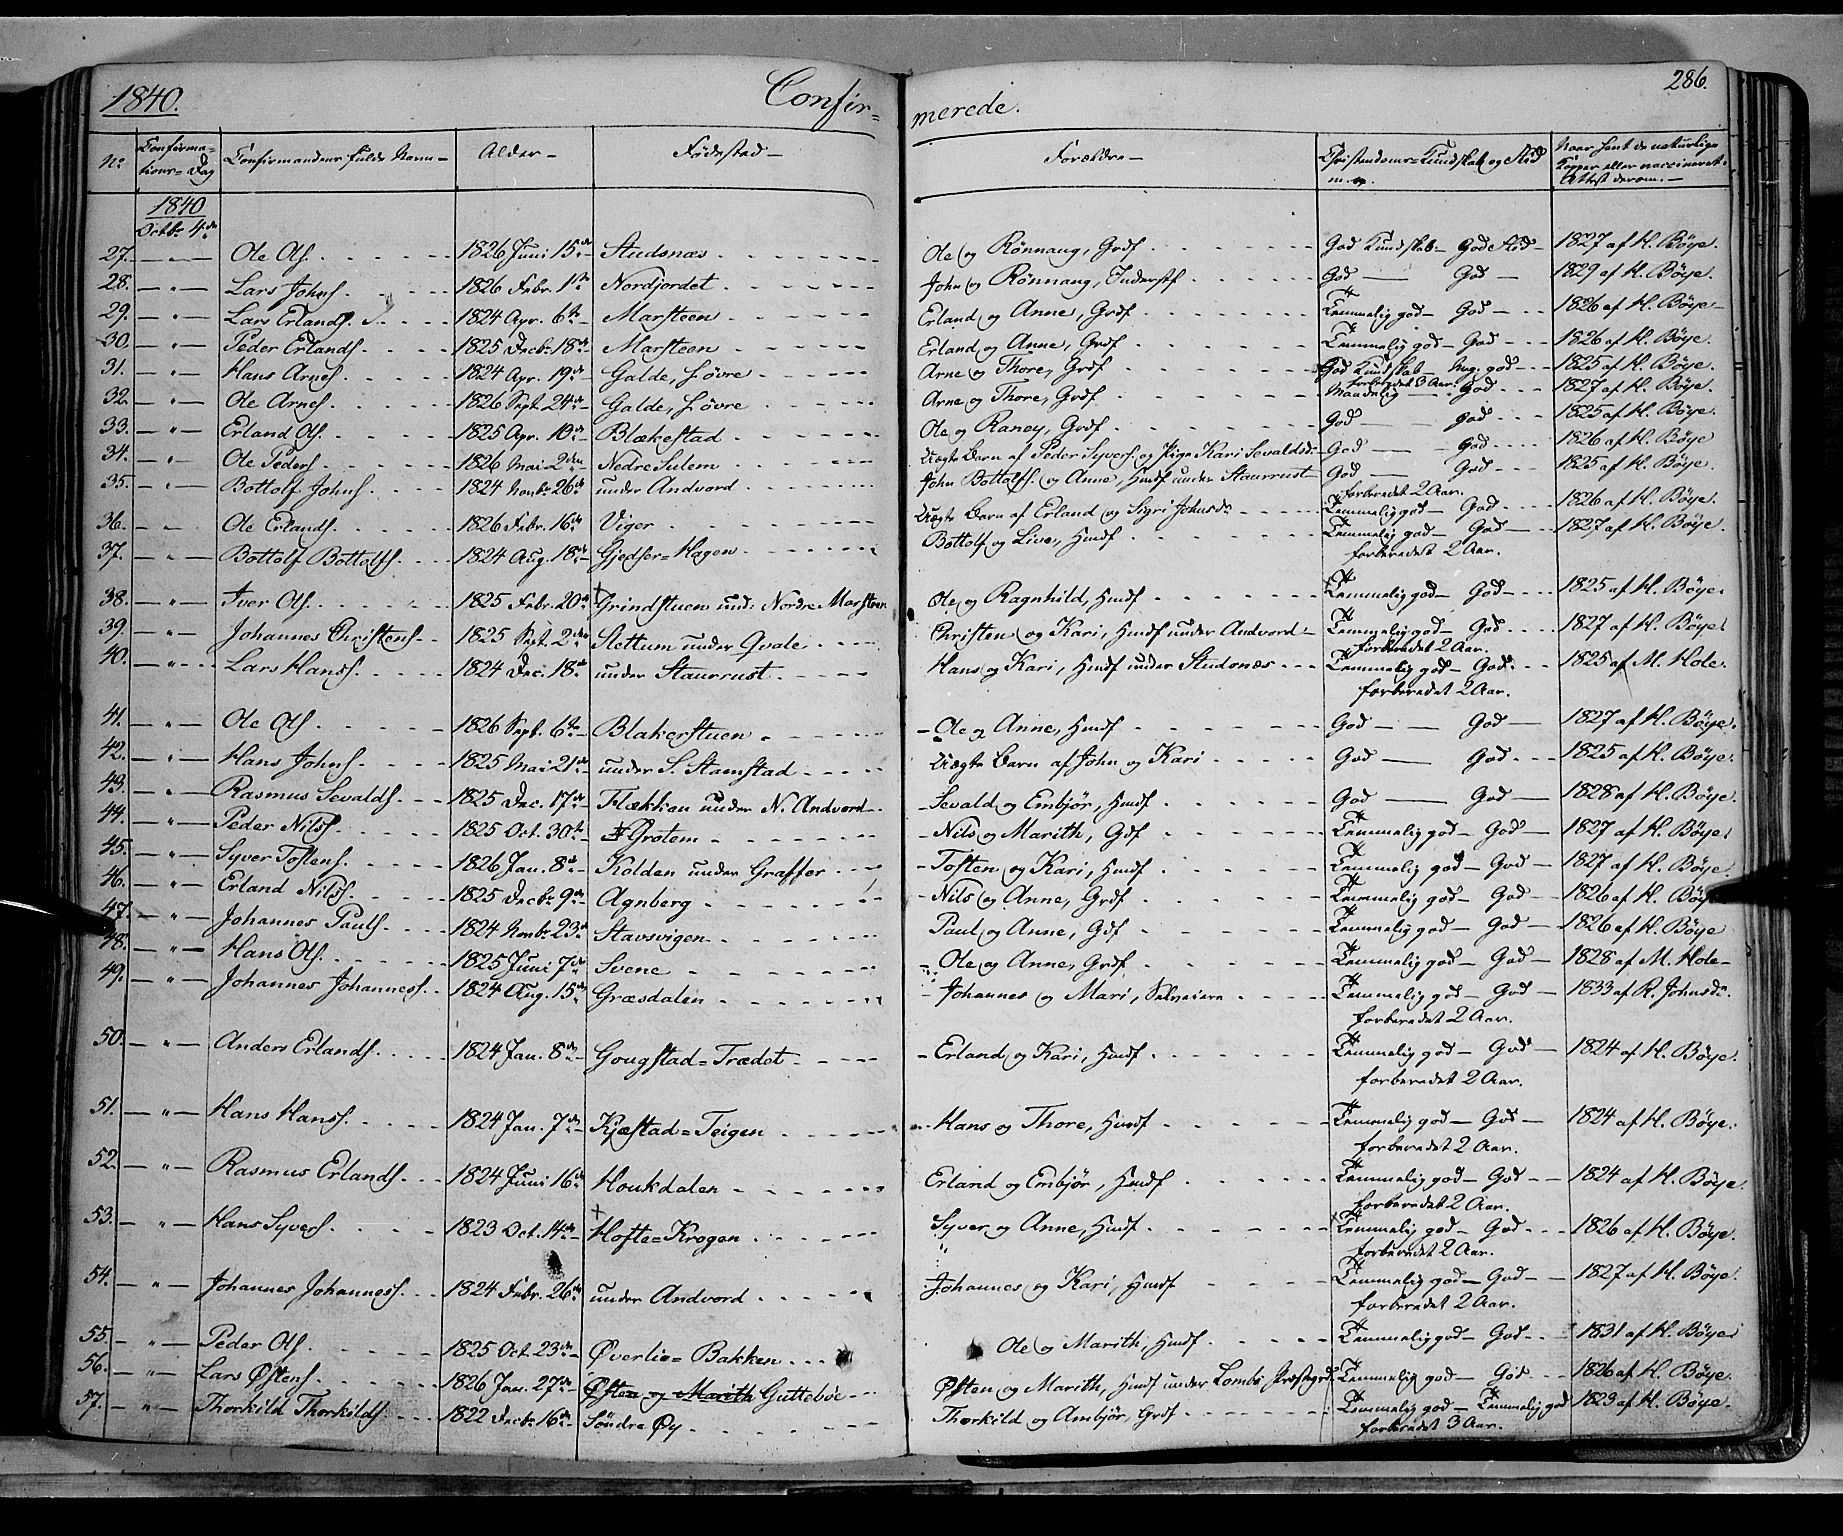 1840. Confir=merede. 286.
No. Confirma=tions=Dag Confirmandens fulde Navn Alder Fødested Forældre Christendoms=Kundskab og Flid m. v. Naar havt de naturlige Kopper eller vaccineret. Attest derom.
1840
Octbr 4de
27. — " — Ole Ols. 1826 Juni 15de Studsnæs Ole og Rönnaug, Grdf God Kundskab — God Flid — 1827 af H. Bøye.
28. — " — Lars Johns. 1826 Febr. 1ste Nordjordet John og Rönnaug, Inderstf God — God — 1829 af H. Bøye.
29. — " — Lars Erlands. 1824 Apr. 6te Marsteen Erland og Anne, Grdf Temmelig god — God — 1826 af H. Bøye —
30. — " — Peder Erlands. 1825 Decbr. 18de Marsteen Erland og Anne, Grdf Temmelig god — God — 1826 af H. Bøye.
31. — " — Hans Arnes. 1824 Apr. 19de Galde, Høvre Arne og Thore, Grdf God Kundskab — Mg. god — 1825 af H. Bøye.
forberedet 3 Aar.
32. — " — Ole Arnes. 1826 Sept. 24de Galde, Høvre Arne og Thore, Grdf Maadelig — God — 1827 af H. Bøye.
33. — " — Erland Ols. 1825 Apr. 10de Blækestad Ole og Raney, Grdf God — God 1825 af H. Bøye.
34. — " — Ole Peders. 1826 Mai 2den Nedre Sulem Uægte Barn af Peder Syvers. og Pige Kari Sevaldsd. God — God 1826 af H. Bøye
35. — " — Bottolf Johns. 1824 Novbr. 26de under Andvord John Bottolfs. og Anne, Hmdf under Staurrust God — God 1825 af H. Bøye.
forberedet 2 Aar.
36. — " — Ole Erlands. 1826 Febr. 16de Viger Uægte Barn af Erland og Sigri Johnsd. Temmelig god — God 1826 af H. Bøye
37. — " — Bottolf Bottolfs. 1824 Aug. 18de Gjedser=Hagen Bottolf og Live, Hmdf Temmelig god — God — 1827 af H. Bøye.
forberedet 2 Aar.
38. — " — Iver Ols. 1825 Febr. 20de Grindstuen und: Nordre Marsteen Ole og Ragnhild, Hmdf Temmelig god — God 1825 af H. Bøye.
39. — " — Johannes Christens. 1825 Sept. 2den Slettum under Qvale Christen og Kari, Hmdf under Andvord Temmelig god — God 1827 af H. Bøye.
forberedet 2 Aar.
40. — " — Lars Hanss. 1824 Dec. 18de under Staurrust Hans og Kari, Hmdf under Studsnæs Temmelig god — God. 1825 af M. Hole.
forberedet 2 Aar.
41. — " — Ole Ols. 1826 Sept. 6te Blakerstuen Ole og Anne, Hmdf God — God — 1827 af H. Bøye.
42. — " — Hans Johns. 1825 Mai 21de under S. Stamstad Uægte Barn af John og Kari God — God 1825 af H. Bøye.
43. — " — Rasmus Sevalds. 1825 Dec. 17de Flækkan under N. Andvord Sevald og Embjør, Hmdf God — God — 1828 af H. Bøye.
44. — " — Peder Nilss. 1825 Oct. 30te Grotem Nils og Marith, Gdf Temmelig god — God — 1827 af H. Bøye.
45. — " — Syver Tostens. 1826 Jan. 8de Kolden under Graffer Tosten og Kari, Hmdf Temmelig god — God 1827 af H. Bøye.
46. — " — Erland Nilss. 1825 Decbr. 9de Agnberg Nils og Anne, Grdf Temmelig god — God — 1826 af H. Bøye
47. — " — Johannes Pauls. 1824 Novbr. 23de Stavsvigen Paul og Anne, Gdf Temmelig god — God — 1826 af H. Bøye
48. — " — Hans Ols. 1825 Juni 7de Svene Ole og Anne, Grdf Temmelig god — God — 1828 af M. Hole —
49. — " — Johannes Johanness. 1824 Aug. 15de Græsdalen Johannes og Mari, Selveiere Temmelig god — God — 1833 af R. Johnsd.
forberedet 2 Aar.
50. — " — Anders Erlands. 1824 Jan. 8de Gougstad=Trædet Erland og Kari, Hmdf Temmelig god — God — 1824 af H. Bøye.
forberedet 2 Aar.
51. — " — Hans Hanss. 1824 Jan. 7de Kjæstad=Teigen Hans og Thore, Hmdf Temmelig god — God — 1824 af H. Bøye.
forberedet 2 Aar.
52. — " — Rasmus Erlands. 1824 Juni 16de Houkdalen Erland og Embjør, Hmdf Temmelig god — God 1824 af H. Bøye.
forberedet 2 Aar.
53. — " — Hans Syvers. 1823 Oct. 14de Hofte=Krogen Syver og Anne, Hmdf Temmelig god — God 1826 af H. Bøye.
forberedet 2 Aar.
54. — " — Johannes Johanness. 1824 Febr. 26de under Andvord Johannes og Kari, Hmdf Temmelig god — God 1827 af H. Bøye.
forberedet 2 Aar.
55. — " — Peder Ols. 1825 Oct. 23de Øverlie=Bakken Ole og Marith, Hmdf Temmelig god — God 1831 af H. Bøye
56. — " — Lars Østens. 1826 Jan. 27de Østen og Marith Guttebøe Østen og Marith, Hmdf under Lombs Præstegd. Temmelig god — God 1826 af H. Bøye.
57. — " — Thorkild Thorkilds. 1822 Decbr. 16de Søndre Øy Thorkild og Ambjør, Grdf Temmelig god — Temmelig god 1823 af H. Bøye.
forberedet 3 Aar.